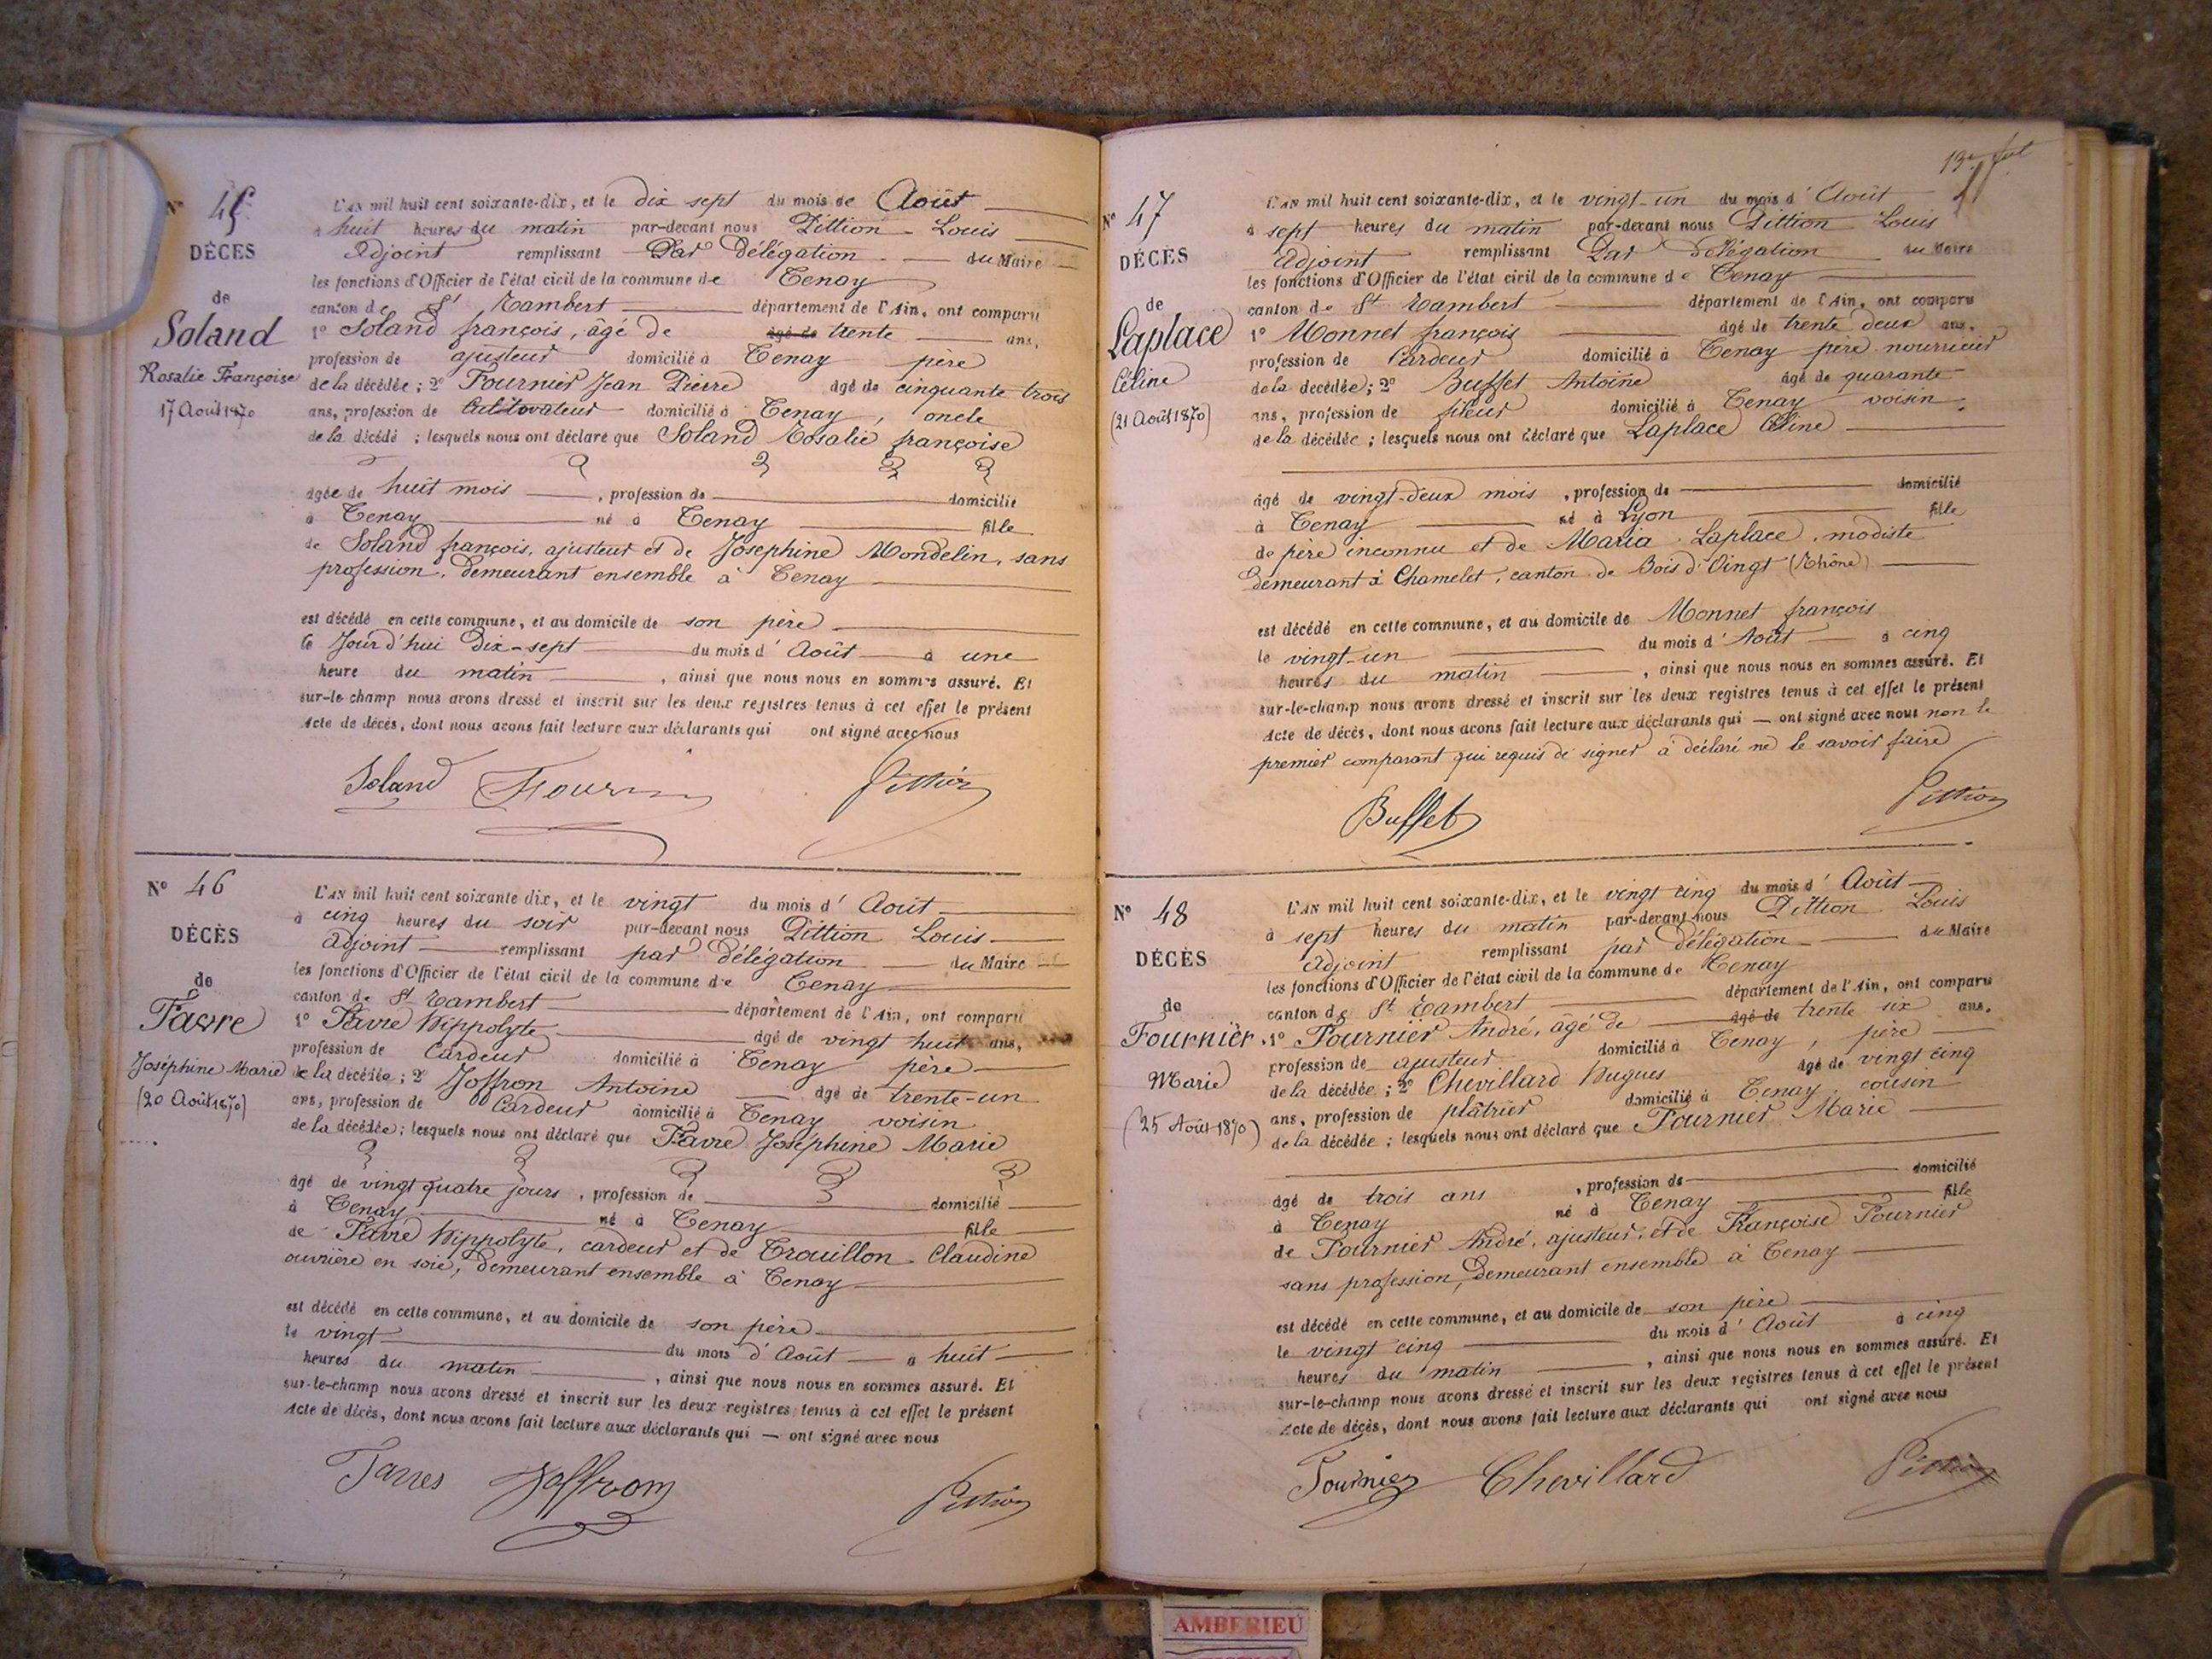 Nº 45
DÉCÈS
de
Soland
Rosalie Françoise
17 Août 1870
L'AN mil huit cent soixante-dix, et le dix sept du mois de Août
à huit heures du matin par-devant nous Pittion Louis
Adjoint remplissant Par Délégation du Maire
les fonctions d'Officier de l'état civil de la commune de Tenay
canton de St Rambert département de l'Ain, ont comparu
1º Soland françois, âgé de âgé de trente ans,
profession de ajusteur domicilié à Tenay père
de la décédée ; 2º Fournier Jean Pierre âgé de cinquante trois
ans, profession de Cultivateur domicilié à Tenay, oncle
de la décédé ; lesquels nous ont déclaré que Soland Rosalie françoise
âgée de huit mois , profession de domicilié
à Tenay né à Tenay fille
de Soland françois, ajusteur et de Josephine Mondelin, sans
profession, demeurant ensemble à Tenay
est décédé en cette commune, et au domicile de son père
le Jour d'hui Dix-sept du mois d'Août à une
heure du matin , ainsi que nous nous en sommes assuré. Et
sur-le-champ nous avons dressé et inscrit sur les deux registres tenus à cet effet le présent
Acte de décès, dont nous avons fait lecture aux déclarants qui ont signé avec nous
Soland Pittion
Nº 46
DÉCÈS
de
Favre
Joséphine Marie
(20 Août 1870)
L'AN mil huit cent soixante dix, et le vingt du mois d'Août
à cinq heures du soir par-devant nous Pittion Louis
adjoint remplissant par délégation du Maire
les fonctions d'Officier de l'état civil de la commune de Tenay
canton de St Rambert département de l'Ain, ont comparu
1º Favre Hippolyte âgé de vingt huit ans,
profession de Cardeur domicilié à Tenay père
de la décédée ; 2º Joffron Antoine âgé de trente-un
ans, profession de Cardeur domicilié à Tenay voisin
de la décédée ; lesquels nous ont déclaré que Favre Joséphine Marie
âgé de vingt quatre jours , profession de domicilié
à Tenay né à Tenay fille
de Favre Hippolyte, cardeur et de Trouillon Claudine
ouvrière en soie, demeurant ensemble à Tenay
est décédé en cette commune, et au domicile de son père
le vingt du mois d'Août à huit
heures du matin , ainsi que nous nous en sommes assuré. Et
sur-le-champ nous avons dressé et inscrit sur les deux registres tenus à cet effet le présent
Acte de décès, dont nous avons fait lecture aux déclarants qui — ont signé avec nous
Joffrom Pittion
Nº 47
DÉCÈS
de
Laplace
Céline
(21 Août 1870)
L'AN mil huit cent soixante-dix, et le vingt-un du mois d'Août
à sept heures du matin par-devant nous Pittion Louis
Adjoint remplissant Par Délégation du Maire
les fonctions d'Officier de l'état civil de la commune de Tenay
canton de St Rambert département de l'Ain, ont comparu
1º Monnet françois âgé de trente deux ans,
profession de Cardeur domicilié à Tenay père nourricier
de la décédée ; 2º Buffet Antoine âgé de quarante
ans, profession de fileur domicilié à Tenay voisin
de la décédée ; lesquels nous ont déclaré que Laplace Céline
âgé de vingt-deux mois , profession de domicilié
à Tenay né à Lyon fille
de père inconnu et de Maria Laplace, modiste
demeurant à Chamelet, canton de Bois d'Oingt (Rhône)
est décédé en cette commune, et au domicile de Monnet françois
le vingt-un du mois d'Août à cinq
heures du matin , ainsi que nous nous en sommes assuré. Et
sur-le-champ nous avons dressé et inscrit sur les deux registres tenus à cet effet le présent
Acte de décès, dont nous avons fait lecture aux déclarants qui — ont signé avec nous non le
premier comparant qui requis de signer a déclaré ne le savoir faire
Buffet Pittion
Nº 48
DÉCÈS
de
Fournier
Marie
(25 Août 1870)
L'AN mil huit cent soixante-dix, et le vingt cinq du mois d'Août
à sept heures du matin par-devant nous Pittion Louis
adjoint remplissant par délégation du Maire
les fonctions d'Officier de l'état civil de la commune de Tenay
canton de St Rambert département de l'Ain, ont comparu
1º Fournier André, âgé de âgé de trente six ans,
profession de ajusteur domicilié à Tenay, père
de la décédée ; 2º Chevillard Hugues âgé de vingt cinq
ans, profession de plâtrier domicilié à Tenay cousin
de la décédée ; lesquels nous ont déclaré que Fournier Marie
âgé de trois ans , profession de domicilié
à Tenay né à Tenay fille
de Fournier André, ajusteur, et de Françoise Fournier
sans profession, demeurant ensemble à Tenay
est décédé en cette commune, et au domicile de son père
le vingt cinq du mois d'Août à cinq
heures du matin , ainsi que nous nous en sommes assuré. Et
sur-le-champ nous avons dressé et inscrit sur les deux registres tenus à cet effet le présent
Acte de décès, dont nous avons fait lecture aux déclarants qui ont signé avec nous
Fournier Chevillard Pittion
AMBERIEU